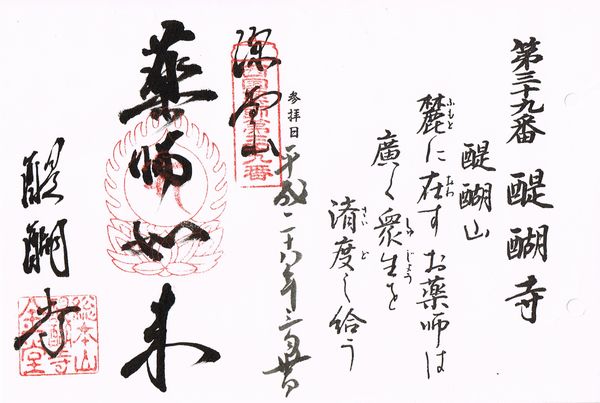 第三十九番 醍醐寺
醍醐山
麓に在す お薬師は
ふもと おわ
廣く衆生を
しゅじょう
済度し給う
さいど
参拝日 平成二十八年三月
深雪山
西国薬師第三十九番
薬師如来
醍醐寺
総本山
醍醐寺
金堂